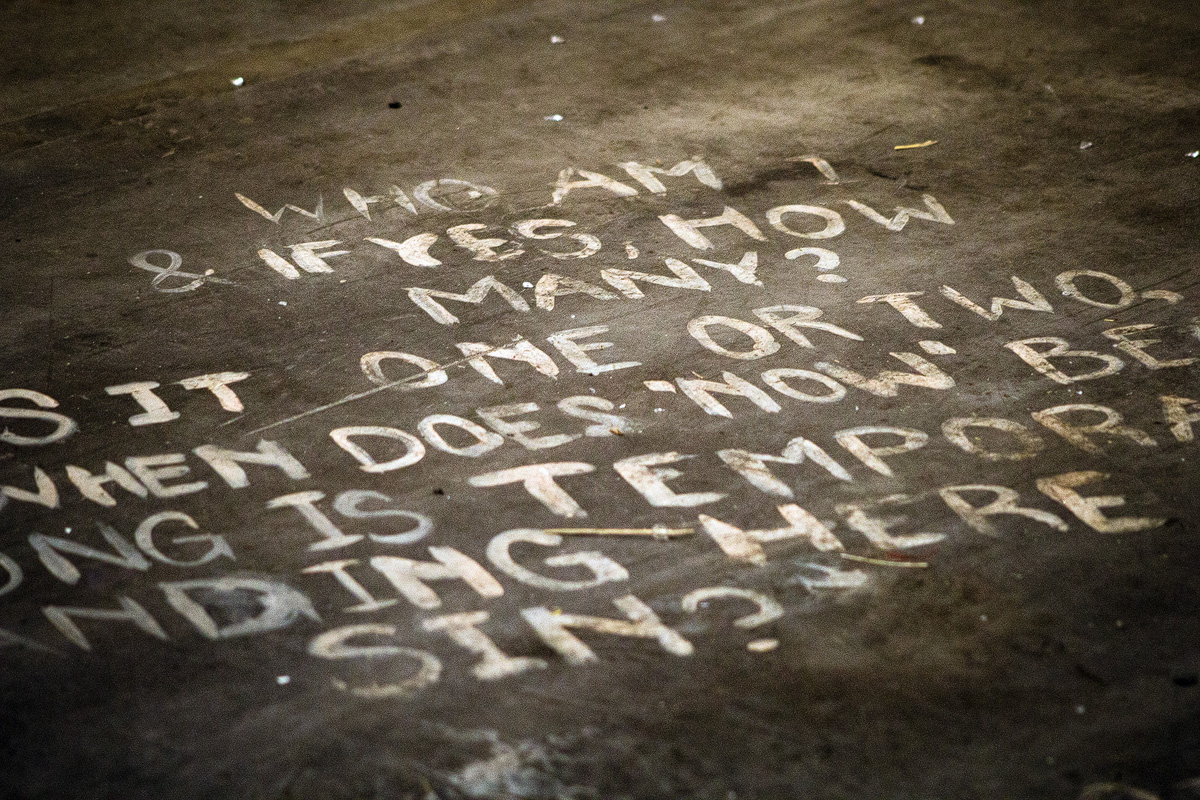 WHO AM I
& IF YES, HOW
MANY?
S IT ONE OR TWO,
WHEN DOES 'NOW' BE
ONG IS TEMPORA
ND ING HERE
SIN?